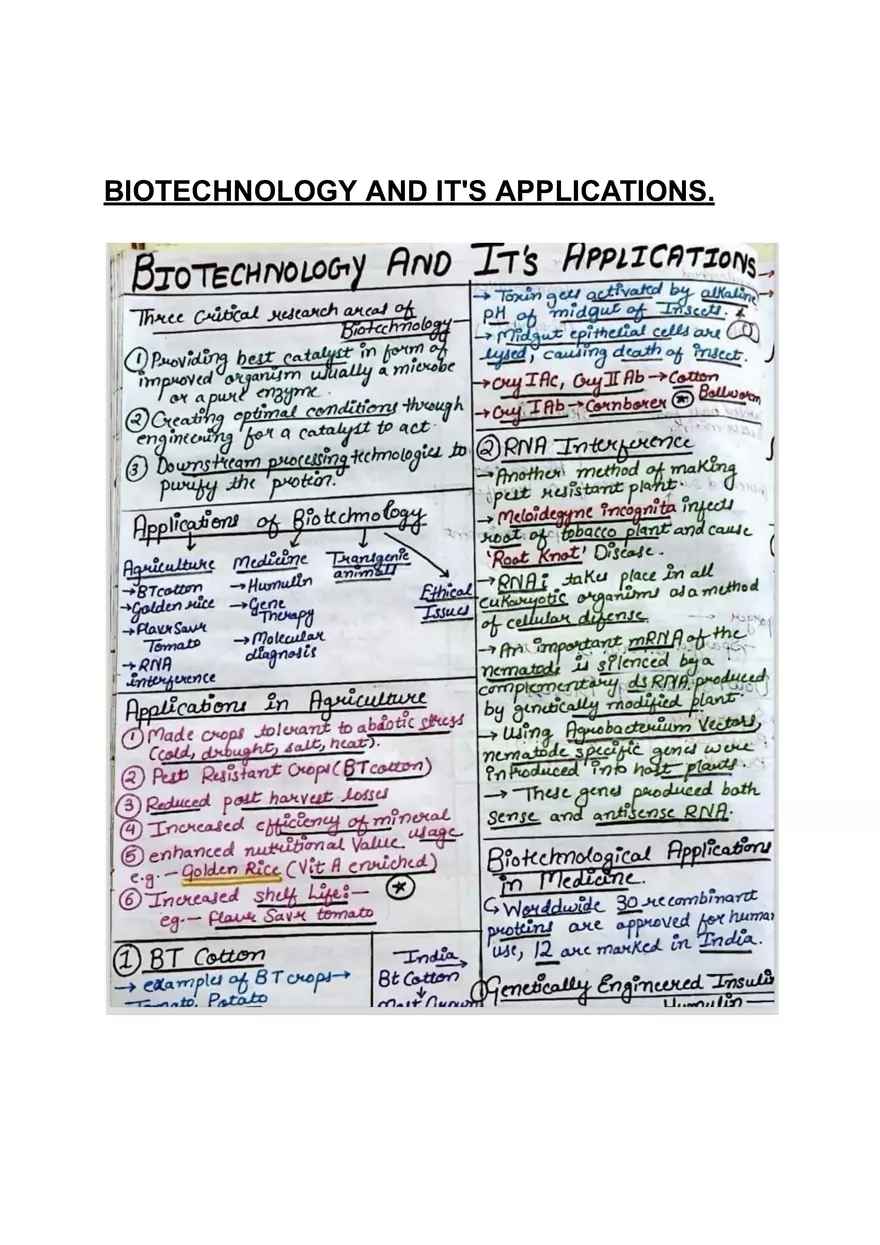 BIOTECHNOLOGY AND IT'S APPLICATIONS.
BIOTECHNOLOGY AND IT'S APPLICATIONS
Three Critical research areas of
Biotechnology
① Providing best catalyst in form of
improved organism usually a microbe
or a pure enzyme.
② Creating optimal conditions through
engineering for a catalyst to act.
③ Downstream processing technologies to
purify the protion.
Applications of Biotechnology
Agriculture
→ BT cotton
→ Golden rice
→ Flavr Savr
Tomato
→ RNA
interference
Medicine
→ Humulin
→ Gene
Therapy
→ Molecular
diagnosis
Transgenic
animals
Ethical
Issues
Applications in Agriculture
① Made crops tolerant to abaotic stress
(cold, drought, salt, heat).
② Pest Resistant Crops (BT cotton)
③ Reduced post harvest losses
④ Increased efficiency of mineral
usage
⑤ enhanced nutritional Value
e.g. - Golden Rice (Vit A enriched)
⑥ Increased shelf Life:-
eg.- Flavr Savr tomato
① BT Cotton
→ examples of BT crops →
Tomato, Potato
India
Bt Cotton
↓
Most Grown
→ Toxin gets activated by alkaline
pH of midgut of Insects.
→ Midgut epithelial cells are
lysed, causing death of insect.
→ Cry I Ac, Cry II Ab → Cotton
Bollworm
→ Cry I Ab → Cornborer
② RNA Interference
→ Another method of making
pest resistant plant.
→ Meloidegyne incognita infects
root of tobacco plant and cause
'Root Knot' Disease.
→ RNAi takes place in all
eukaryotic organisms as a method
of cellular difense.
→ An important mRNA of the
nematode is silenced by a
complementary ds RNA produced
by genetically modified plant.
→ Using Agrobacterium Vectors,
nematode specific genes were
introduced into host plants.
→ These genes produced both
sense and antisense RNA.
Biotechnological Applications
in Medicine.
↳ Worddwide 30 recombinant
proteins are approved for human
use, 12 are marked in India.
① Genetically Engineered Insulin
Humulin